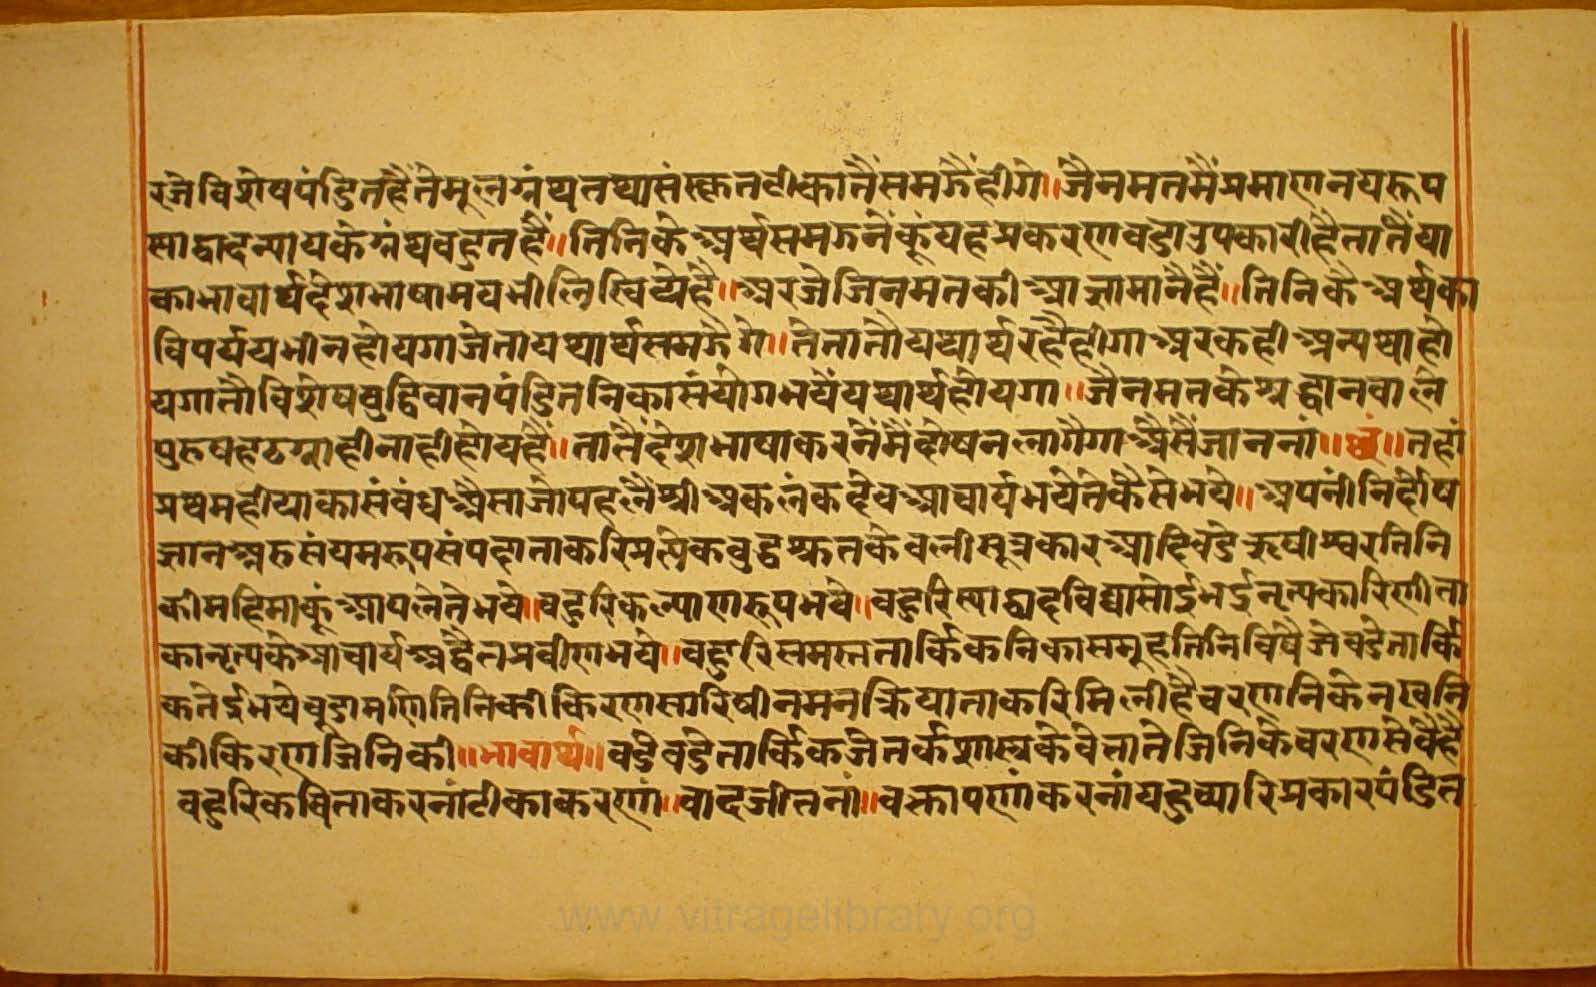 रजे विशेष पंडित हैं ते मूल ग्रंथ तथा संस्कृत टीका तैं समझैंहीगे॥ जैनमत मैं प्रमाण नय रूप
स्याद्वाद न्याय के ग्रंथ बहुत हैं॥ तिनिके अर्थ समझनें कूं यह प्रकरण बडा उपकारी है तातैं या
का भावार्थ देशभाषामय भी लिखिये है॥ अर जे जिनमत की आज्ञा मानै हैं॥ तिनिकै अर्थ का
विपर्यय भी न होयगा जेता यथार्थ समझैगे॥ तेता तौ यथार्थ रहैहीगा अर कही अन्यथा हो
यगा तौ विशेष बुद्धिवान पंडितनि का संयोग भयें यथार्थ होयगा॥ जैनमत के श्रद्धानवाले
पुरुष हठग्राही नाही होय हैं॥ तातैं देशभाषा करनें मैं दोष न लागैगा अैसैं जाननां॥ छ॥ तहां
प्रथम ही याका संबंध अैसा जो पहलैं श्री अकलंकदेव आचार्य भये ते कैसे भये॥ अपनी निर्दोष
ज्ञान अरु संयमरूप संपदा ताकरि प्रत्येकबुद्ध श्रुतकेवली सूत्रकार आदि बडे ऋषीश्वर तिनि
की महिमा कूं आप लेते भये॥ बहुरि कल्याणरूप भये॥ बहुरि स्याद्वादविद्या सोई भई नृत्यकारिणी ता
का नृत्य के आचार्य अद्वैत प्रवीण भये॥ बहुरि समस्त तार्किकनि का समूह तिनि विषै जे बडे तार्कि
क तेई भये चूडामणि तिनि की किरण सारिषी नमन क्रिया ताकरि मिली है चरणनि के नखनि
की किरण जिनिकी॥ भावार्थ॥ बडे बडे तार्किक जे तर्कशास्त्र के वेत्ता ते जिनिके चरण सेवै है
बहुरि कविता करनां टीका करणां॥ वाद जीतनां॥ वक्तापणां करनां यहु च्यारि प्रकार पंडित
www.vitragelibrary.org